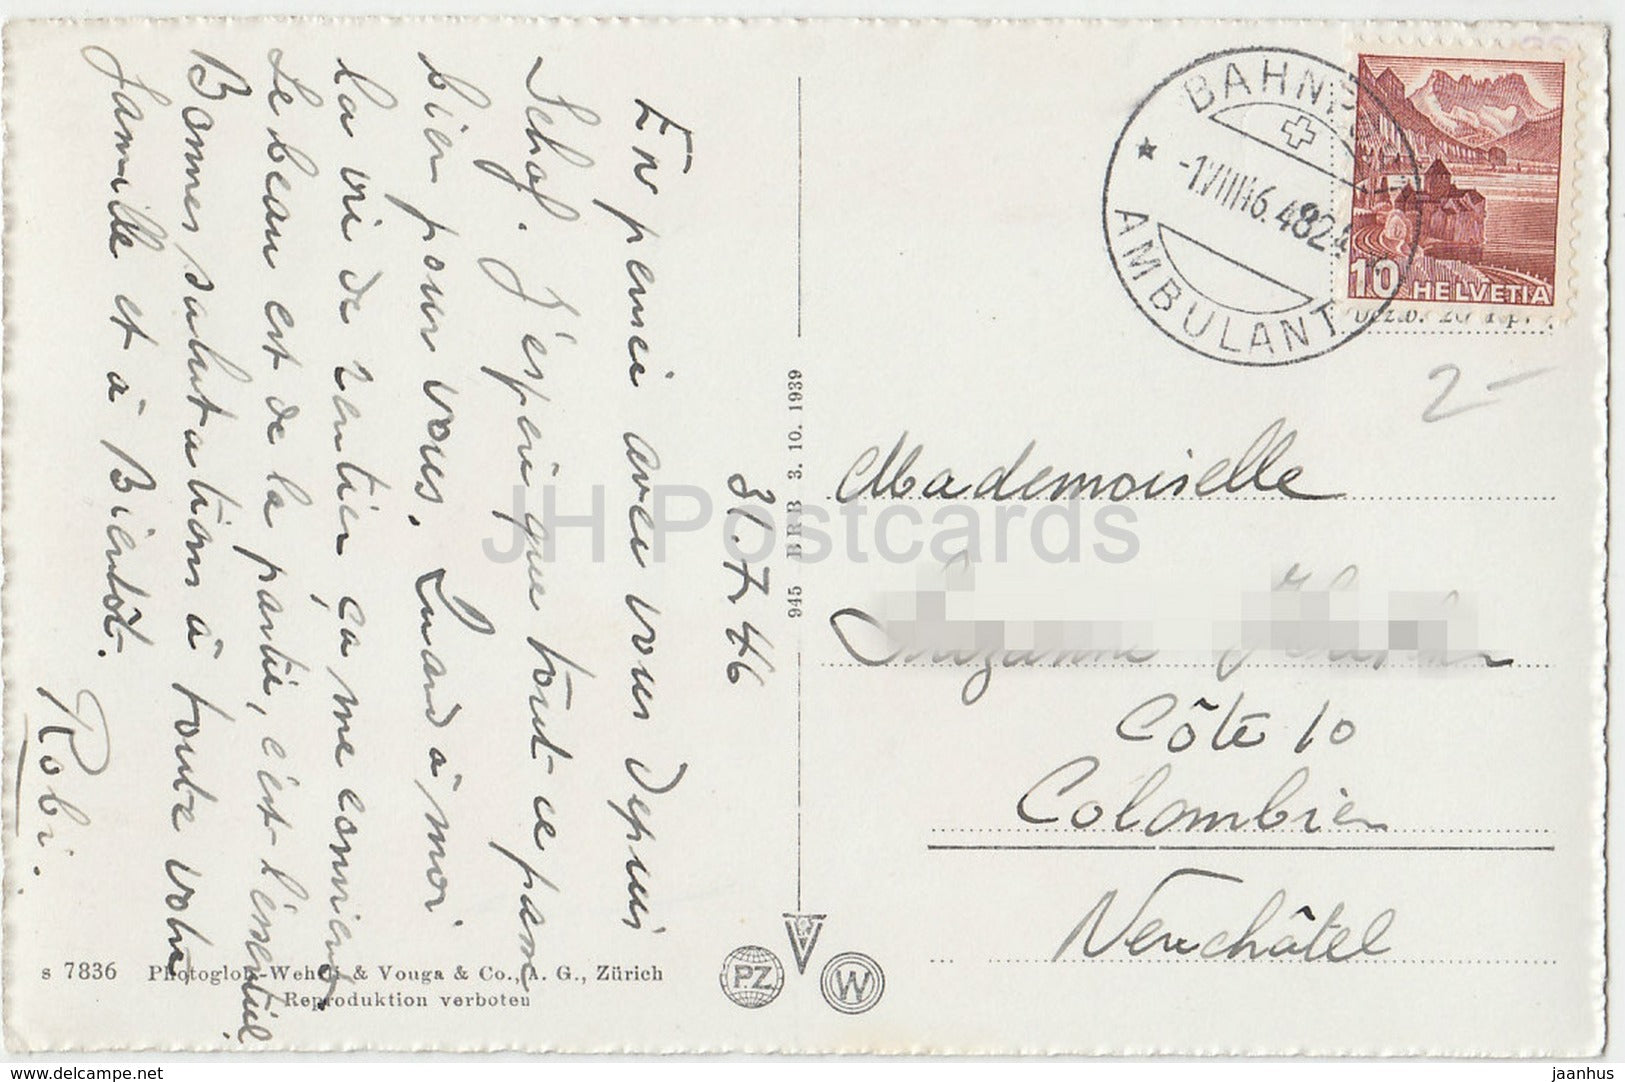 31.7.46
En pensée avec vous depuis
Schaf. J'espère que tout ce passe
bien pour vous. Quand à moi
la vie de rentier ça me convient,
Le beau est de la partie, c'est l'essentiel.
Bonnes salutations à toute votre
famille et à Bientôt.
Robi.
BAHNPOST
AMBULANT
-1.VIII.46.
10 HELVETIA
2-
Mademoiselle
Côte 10
Colombier
Neuchâtel
945 BRB 3. 10. 1939
s 7836 Photoglob-Wehrli & Vouga & Co., A. G., Zürich
Reproduktion verboten
PZ
W
JH Postcards
www.delcampe.net
jaanhus